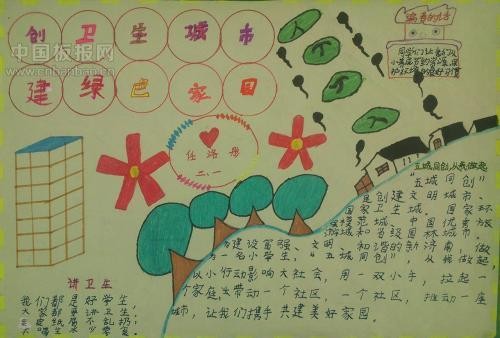 创卫生城市
建绿色家园
中国板报网
www.cnbanbao.cn
编者的话
同学们让我们从
小
任洛彤
二、一
五城同创从我做起
"五城同创"
是创建文明城市、
国家卫生城、国家环
保模范城、中国优秀旅
游城和省级园林城市,
为建设富强、文明、和谐的新济南,做
为一名小学生,"五城同创",从我做起
以小行动影响大社会,用一双小手,拉起一
个家庭,带动一个社区,一个社区,推动一座
城市,让我们携手共建美好家园。
讲卫生
我们都是好学生
大家都要讲卫生